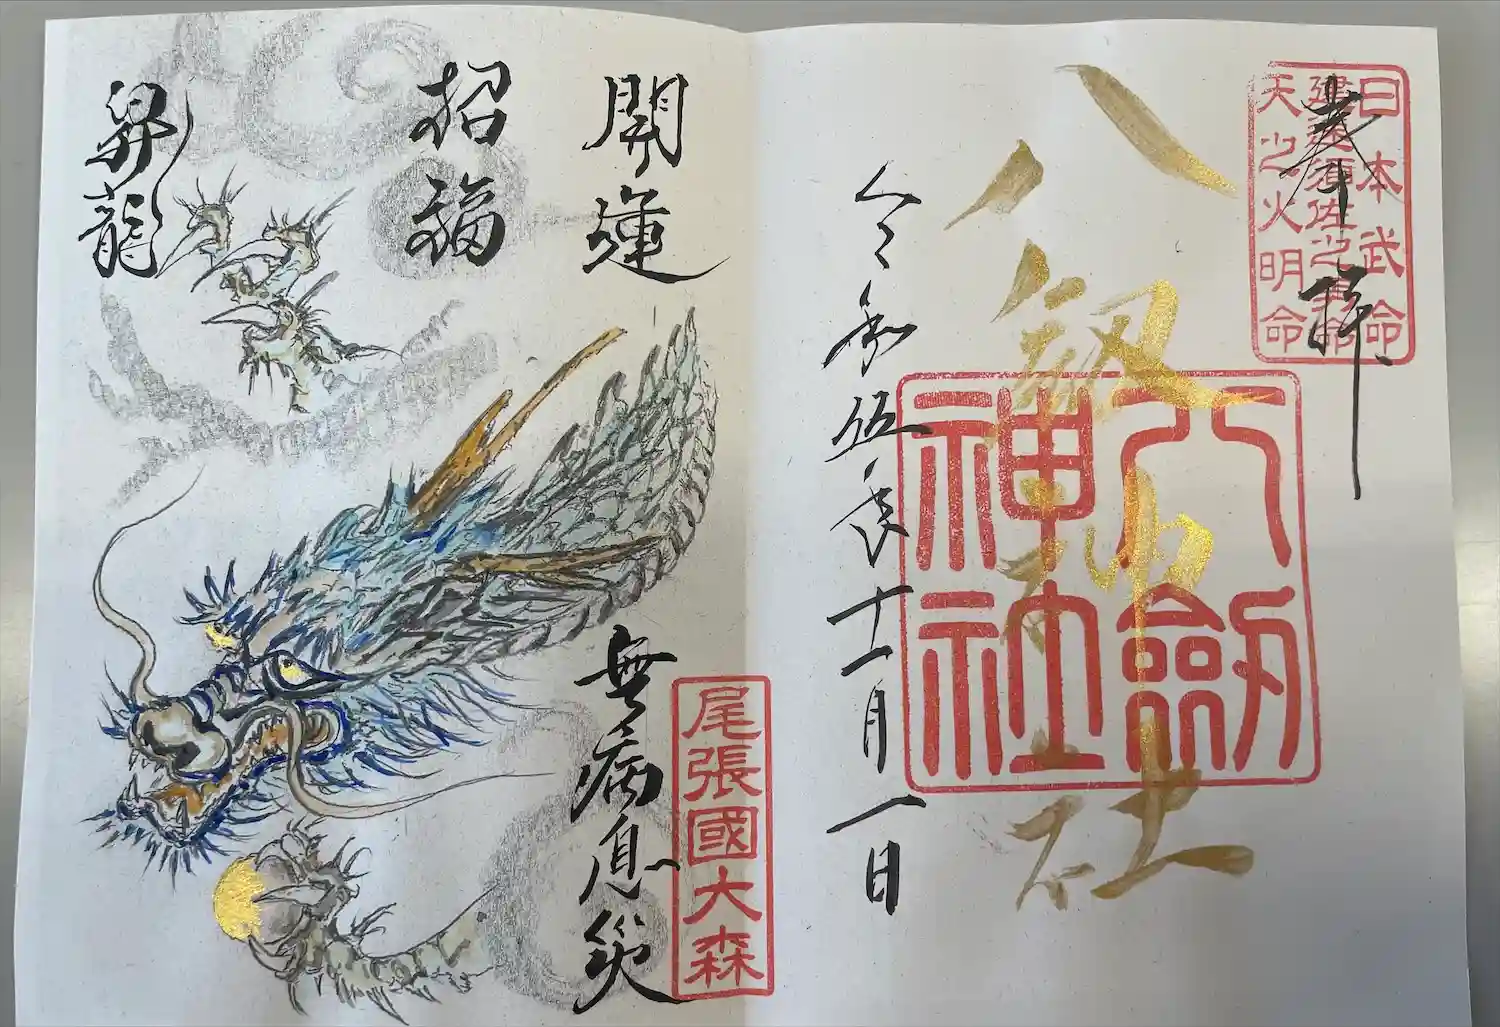 奉拝
日本武命
建速須佐之男命
天之火明命
八釼神社
八劔
神社
令和伍年十一月一日
開運
招福
昇龍
無病息災
尾張國大森